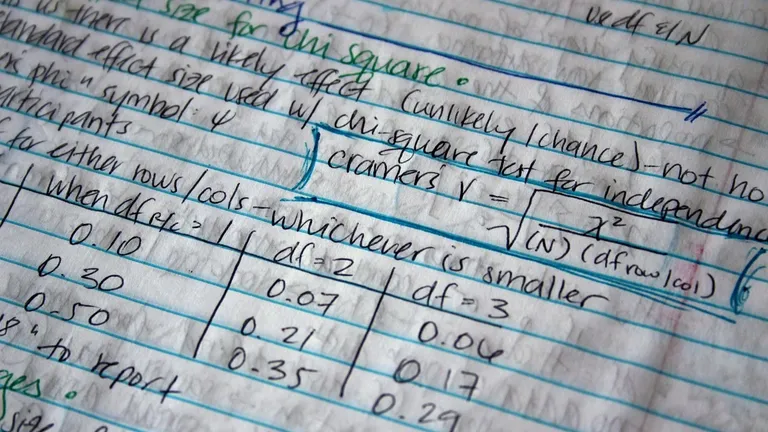 use df & N
size for chi square.
us there is a likely effect (unlikely/chance) - not no
standard effect size used w/ chi-square test for independence
phi " symbol: φ
cramers V = √ χ² / (N) (df row/col)
articipants
for either rows/cols - whichever is smaller
when df R/C = 1 df = 2 df = 3
0.10 0.07 0.06
0.30 0.21 0.17
0.50 0.35 0.29
" to report
ges.